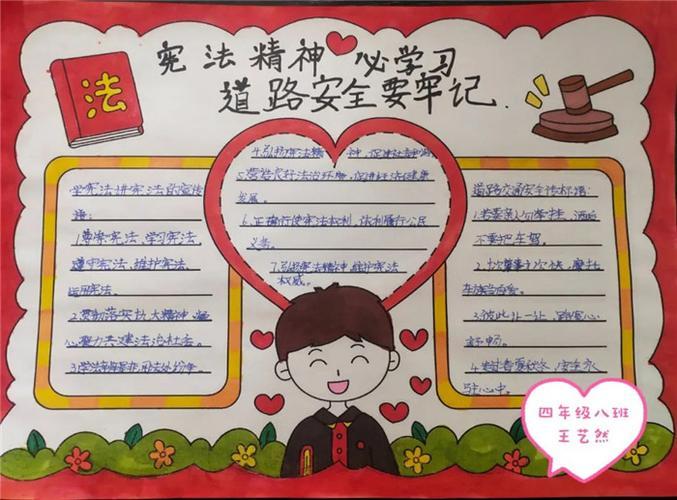 宪法精神 必学习
道路安全要牢记.
法
学宪法讲宪法的宣传
语:
1.尊崇宪法,学习宪法,
遵守宪法,维护宪法,
运用宪法.
2.贯彻落实 大精神,
心聚力共建法治社会。
3.学法
4.弘扬宪法精神,促进社会和谐
5.营造良好法治环境,促进经济健康
发展。
6.正确行使宪法权利,依法履行公民
义务。
7.弘扬宪法精神,维护宪法
权威。
道路交通安全宣传标语:
1.若要亲人勿牵挂,酒后
不要把车驾。
2.
3.彼此让一让,路宽心
舒畅。
4.
驻心中。
四年级八班
王艺然